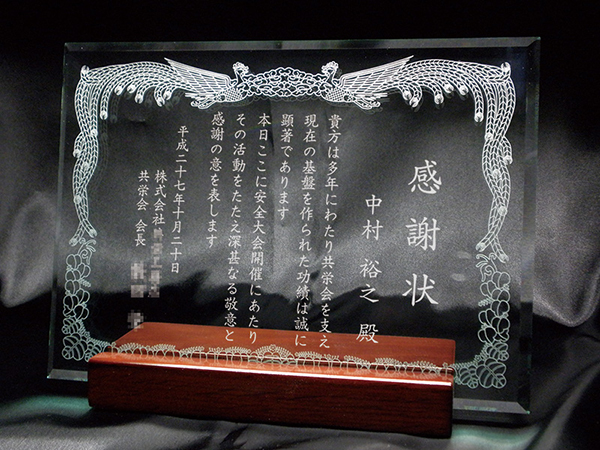 感謝状
中村 裕之 殿
貴方は多年にわたり共栄会を支え
現在の基盤を作られた功績は誠に
顕著であります
本日ここに安全大会開催にあたり
その活動をたたえ深甚なる敬意と
感謝の意を表します
平成二十七年十月二十日
株式会社
共栄会 会長